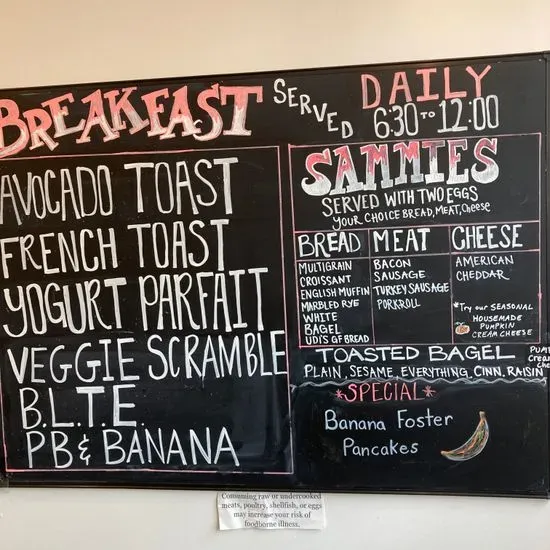 BREAKFAST
SERVED
DAILY
6:30 TO 12:00
AVOCADO TOAST
FRENCH TOAST
YOGURT PARFAIT
VEGGIE SCRAMBLE
B.L.T.E.
PB & BANANA
SAMMIES
SERVED WITH TWO EGGS
YOUR CHOICE BREAD, MEAT, Cheese
BREAD
MULTIGRAIN
CROISSANT
ENGLISH MUFFIN
MARBLED RYE
WHITE
BAGEL
UDI'S GF BREAD
MEAT
BACON
SAUSAGE
TURKEY SAUSAGE
PORKROLL
CHEESE
AMERICAN
CHEDDAR
*Try our SEASONAL
HOUSEMADE
PUMPKIN
CREAM CHEESE
TOASTED BAGEL
PLAIN, SESAME, EVERYTHING, CINN. RAISIN
*SPECIAL*
Banana Foster
Pancakes
Consuming raw or undercooked
meats, poultry, shellfish, or eggs
may increase your risk of
foodborne illness.